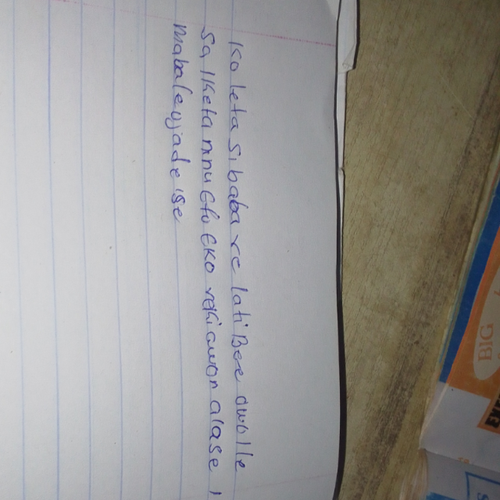 Ko leta si baba re lati Bee owo lle
sa lketa mnu Efu Eko reki awon alase ,
mabaleyjade ise
BIG